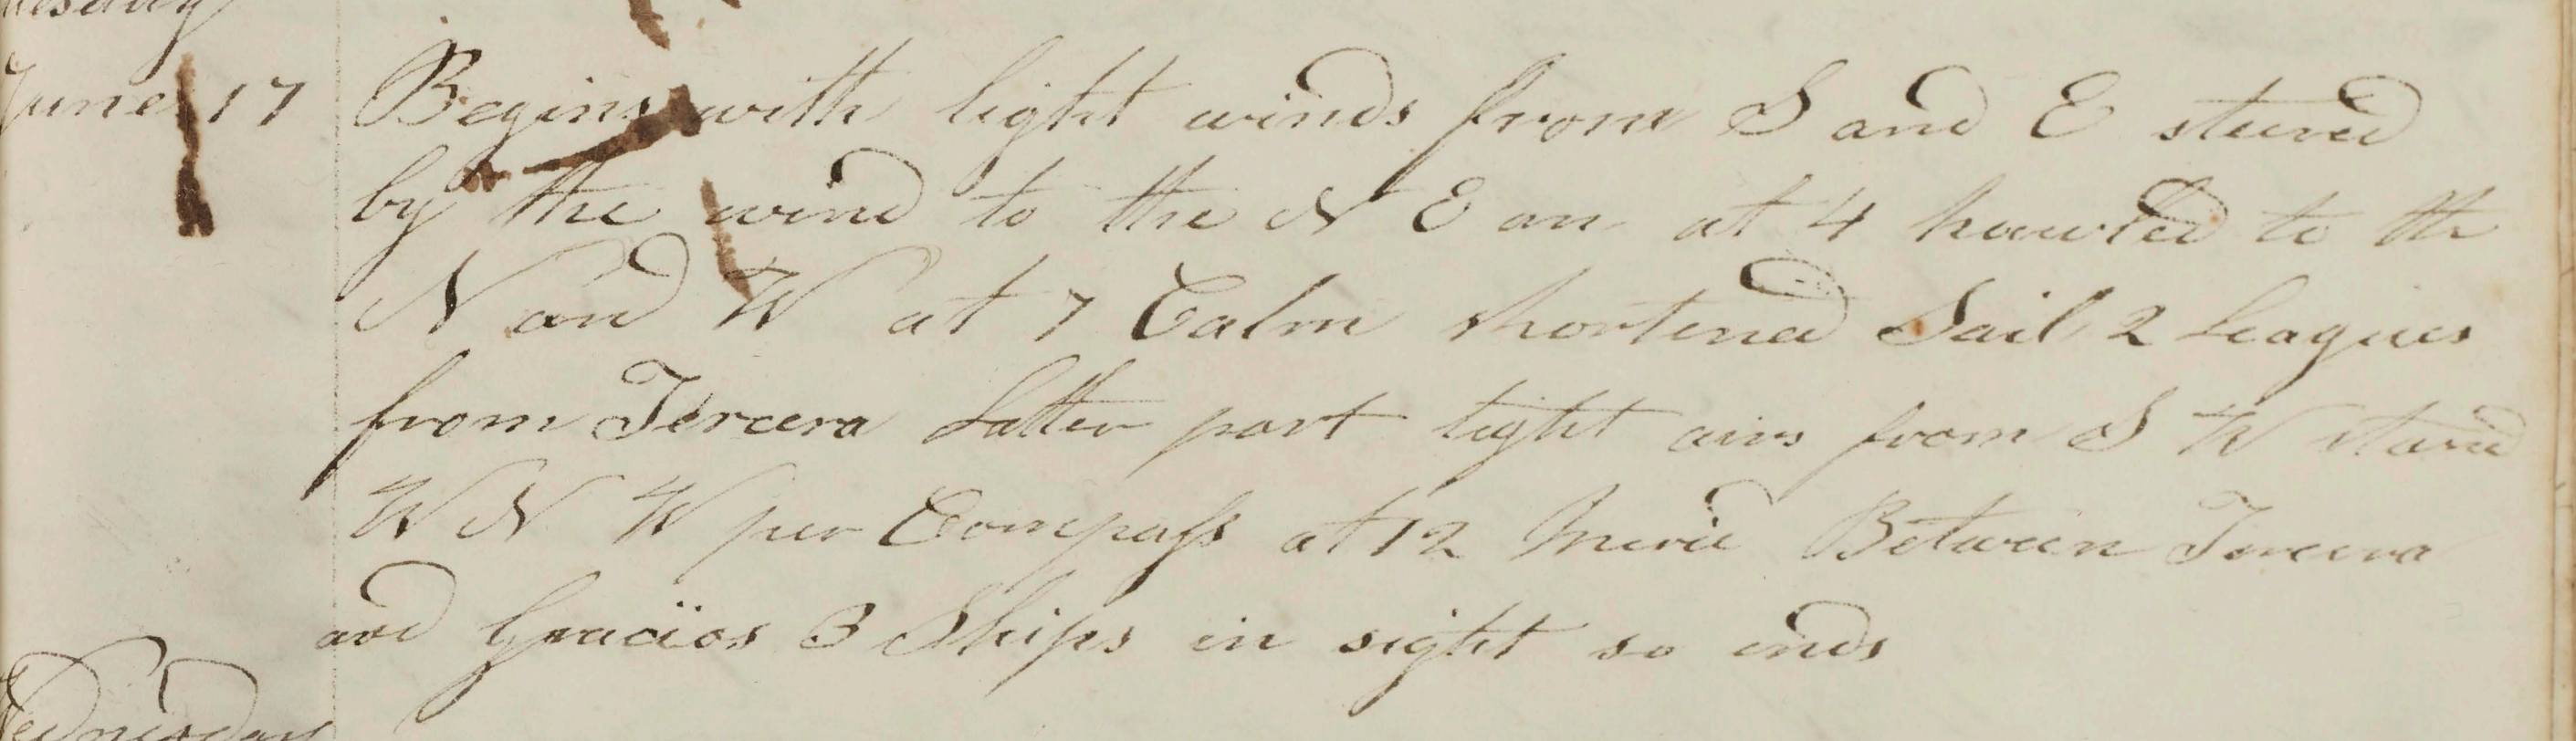 June 17 Begins with light winds from S and E steered
by the wind to the N E an at 4 hawled to th
N and W at 7 Calm shortened Sail 2 Leagues
from Tercera Latter part light airs from S W stared
W N W per Compass at 12 Merid Between Tercera
and Gracios 3 Ships in sight so ends
Wednesday